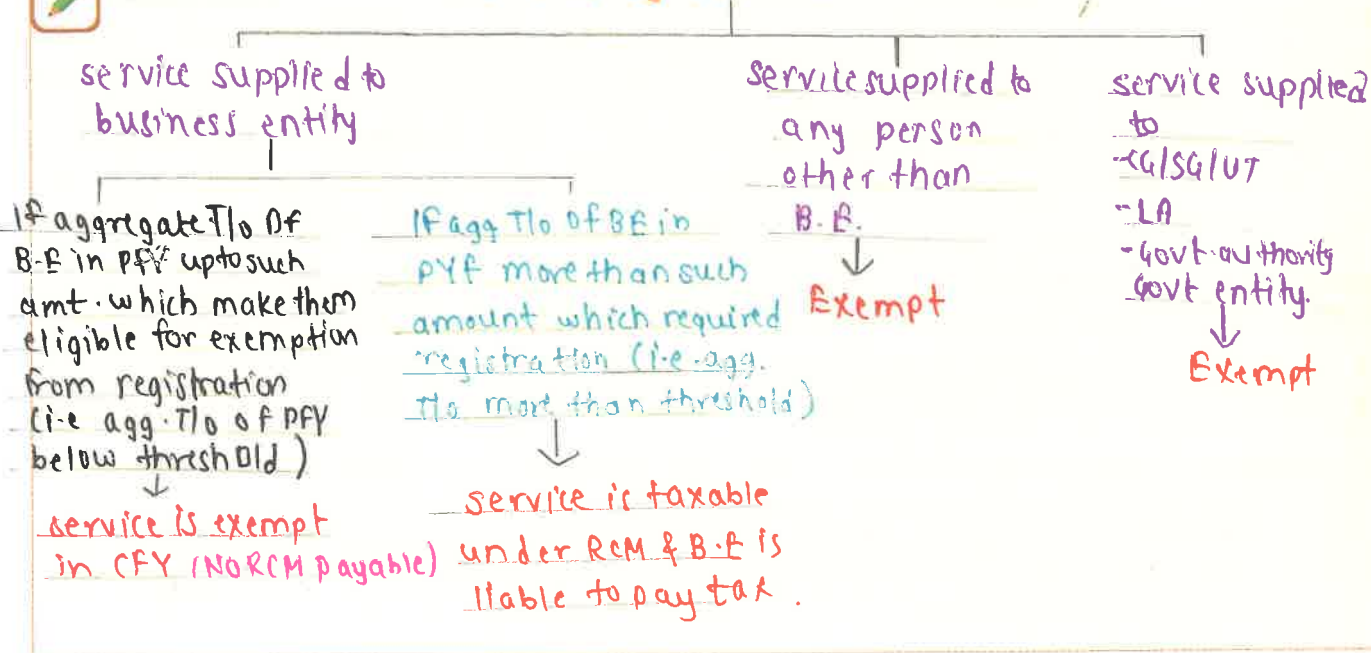 service supplied to
business entity
If aggregate T/o Of
B.E in PFY upto such
amt. which make them
eligible for exemption
from registration
(i.e agg. T/o of PFY
below threshold)
service is exempt
in CFY (NO RCM payable)
If agg T/o Of BE in
PYF more than such
amount which required
registration (i.e. agg.
T/o more than threshold)
service is taxable
under RCM & B.E is
liable to pay tax.
service supplied to
any person
other than
B.E.
Exempt
service supplied
to
-CG/SG/UT
-LA
-Govt. authority
Govt entity.
Exempt